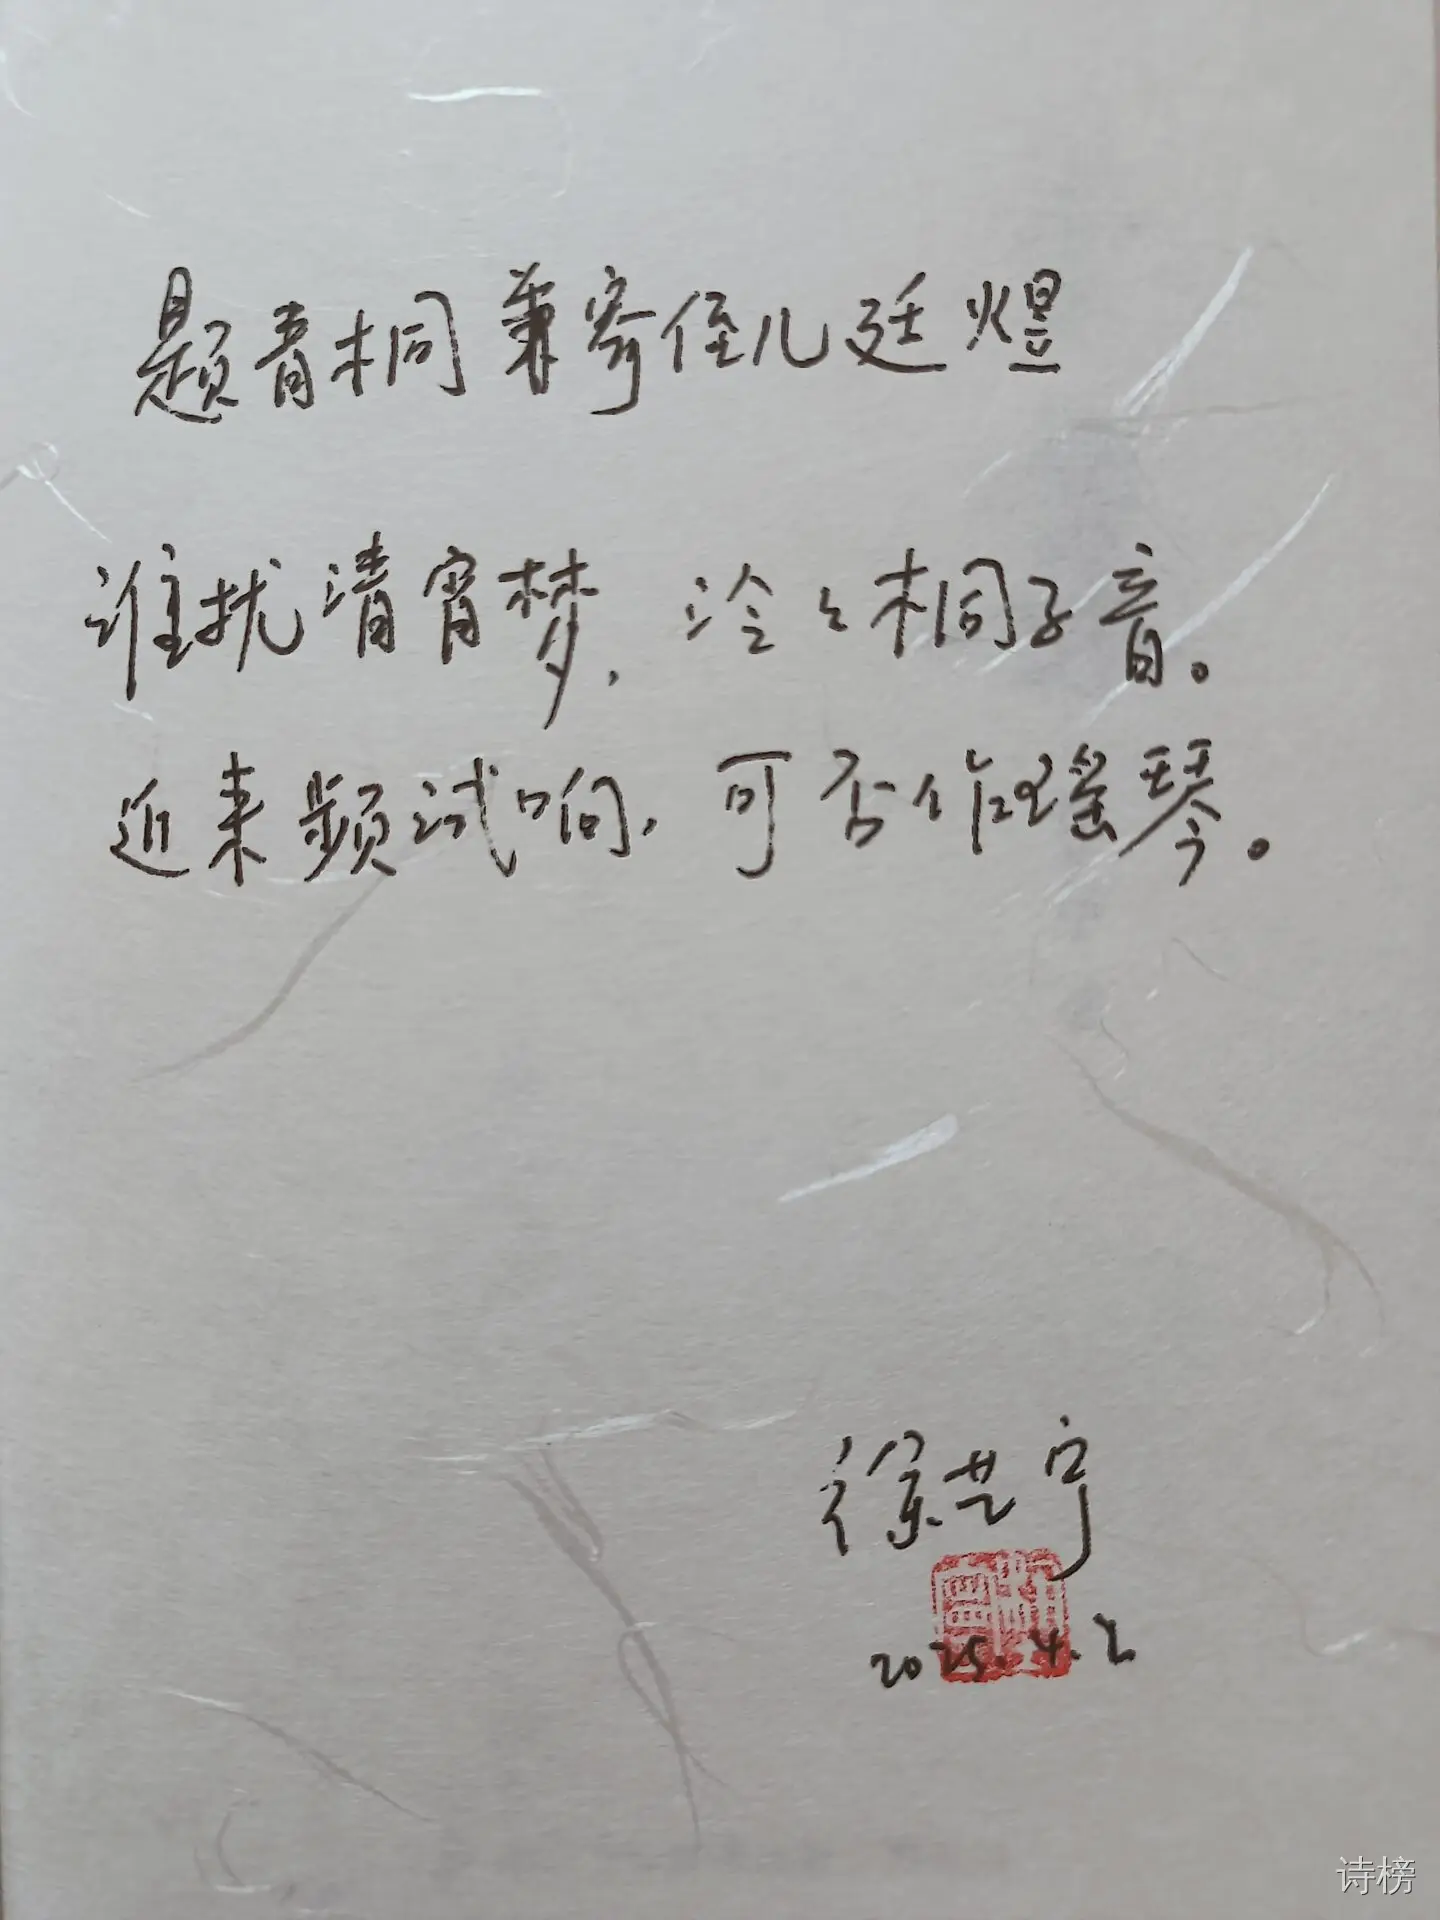 题青桐兼寄侄儿廷煜
谁扰清宵梦，泠々桐子音。
近来频试响，可否作瑶琴。
徐艺宁
2025.4.2
诗榜